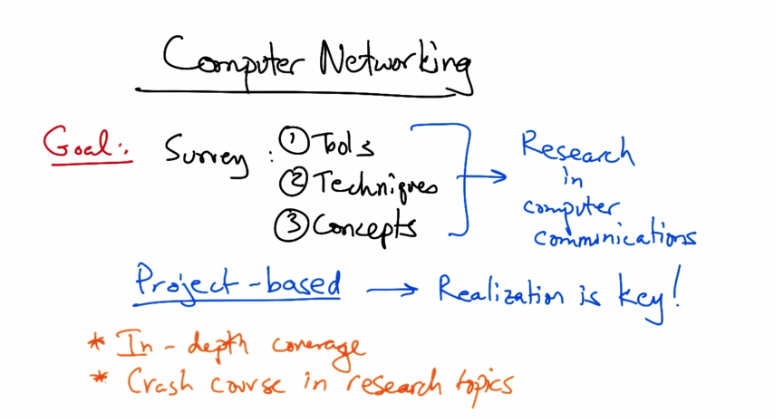 Computer Networking
Goal: Survey: ① Tools
② Techniques
③ Concepts
Research
in
computer
communications
Project-based → Realization is key!
* In-depth coverage
* Crash course in research topics